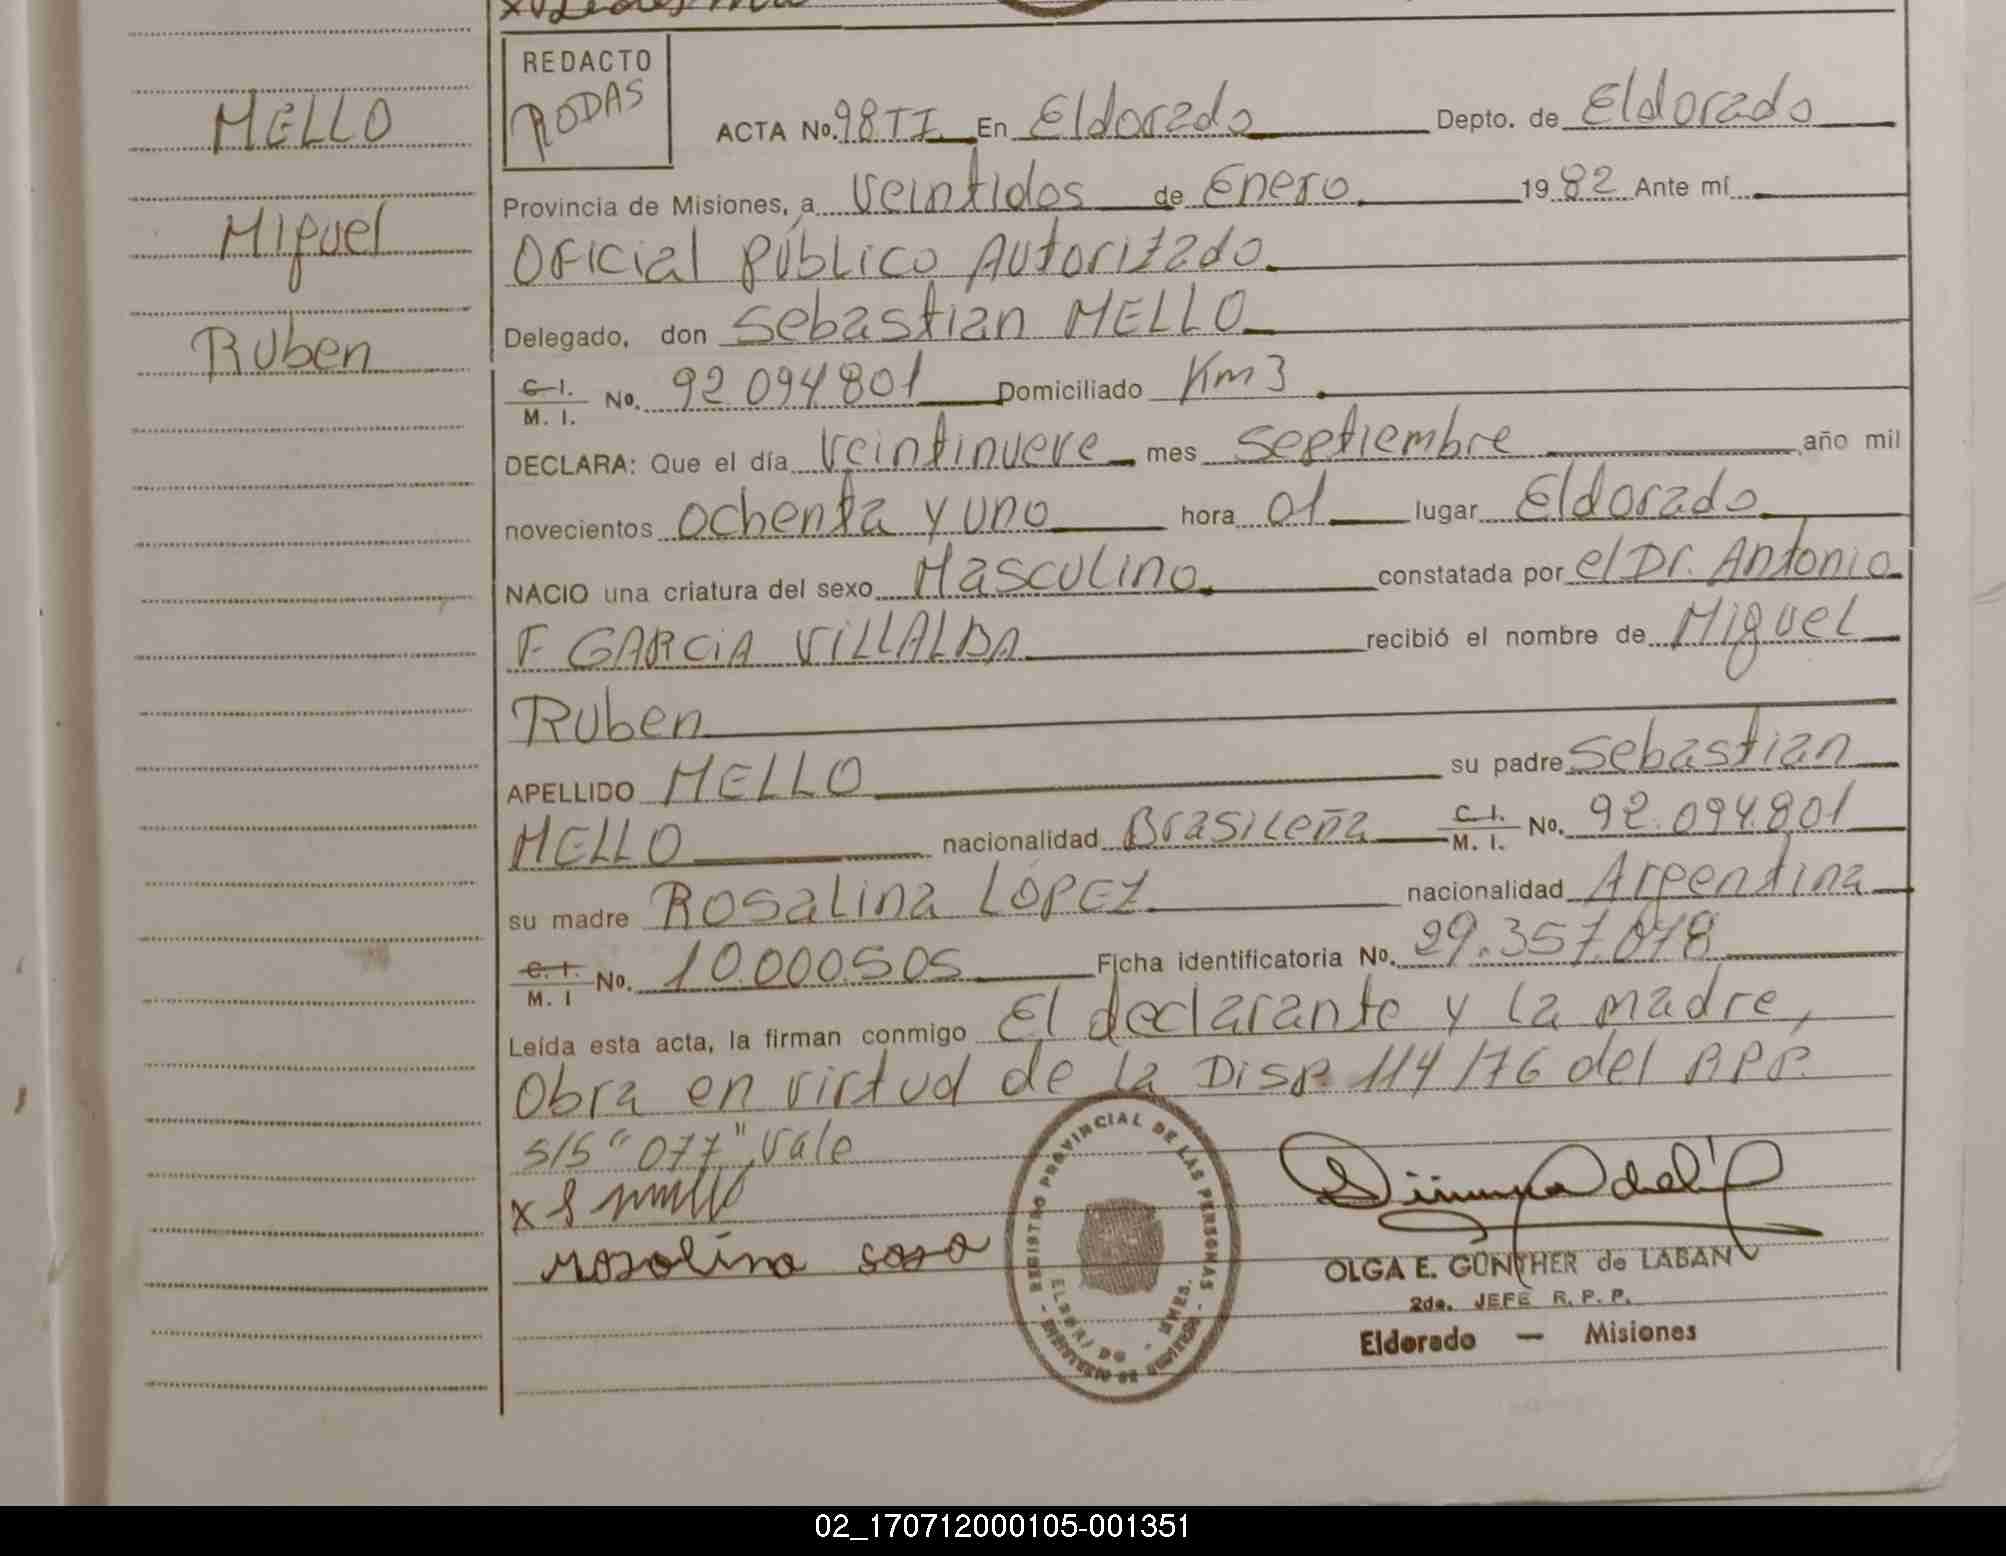 MELLO
Miguel
Ruben
REDACTO
RODAS
ACTA No. 98 TI En Eldorado Depto. de Eldorado
Provincia de Misiones, a veintidos de Enero 1982 Ante mí
Oficial Público Autorizado
Delegado, don Sebastian MELLO
C.I. M. I. No. 92 094 801 Domiciliado Km 3
DECLARA: Que el día veintinueve mes septiembre año mil
novecientos ochenta y uno hora 01 lugar Eldorado
NACIO una criatura del sexo Masculino constatada por el Dr. Antonio
F. GARCIA VILLALBA recibió el nombre de Miguel
Ruben
APELLIDO MELLO su padre Sebastian
MELLO nacionalidad Brasileña C.I. M. I. No. 92.094.801
su madre Rosalina LÓPEZ nacionalidad Argentina
C.I. M. I No. 10.000.505 Ficha identificatoria No. 29.357.078
Leída esta acta, la firman conmigo El declarante y la madre,
Obra en virtud de la Disp. 114/76 del RPP.
S/S "077", vale
x S
rosolina
REGISTRO PROVINCIAL DE LAS PERSONAS
ELDORADO - MNES.
OLGA E. GÜNTHER de LABAN
2da. JEFE R. P. P.
Eldorado — Misiones
02_170712000105-001351